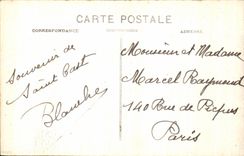 CARTE POSTALE
CORRESPONDANCE
ADRESSE
Souvenir de
Saint Cast
Blanche
Monsieur et Madame
Marcel Raymond
140 Rue de Picpus
Paris